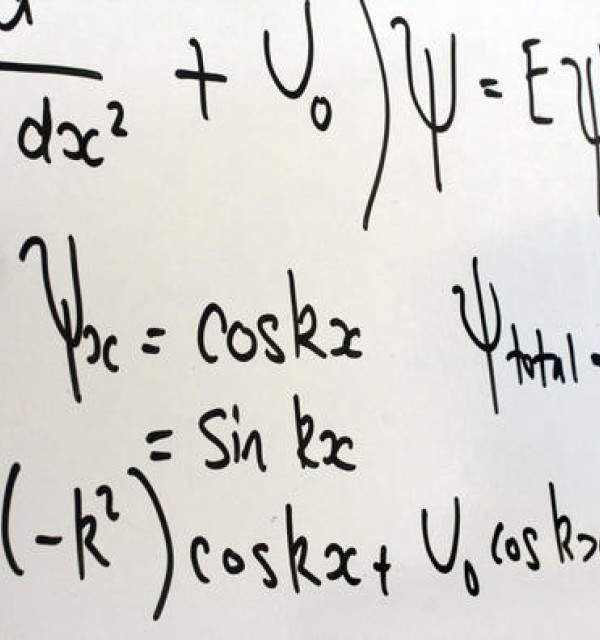 dx² + U₀) ψ = Eψ
ψx = coskx ψtotal
= Sin kx
(-k²) coskx + U₀ cos kx